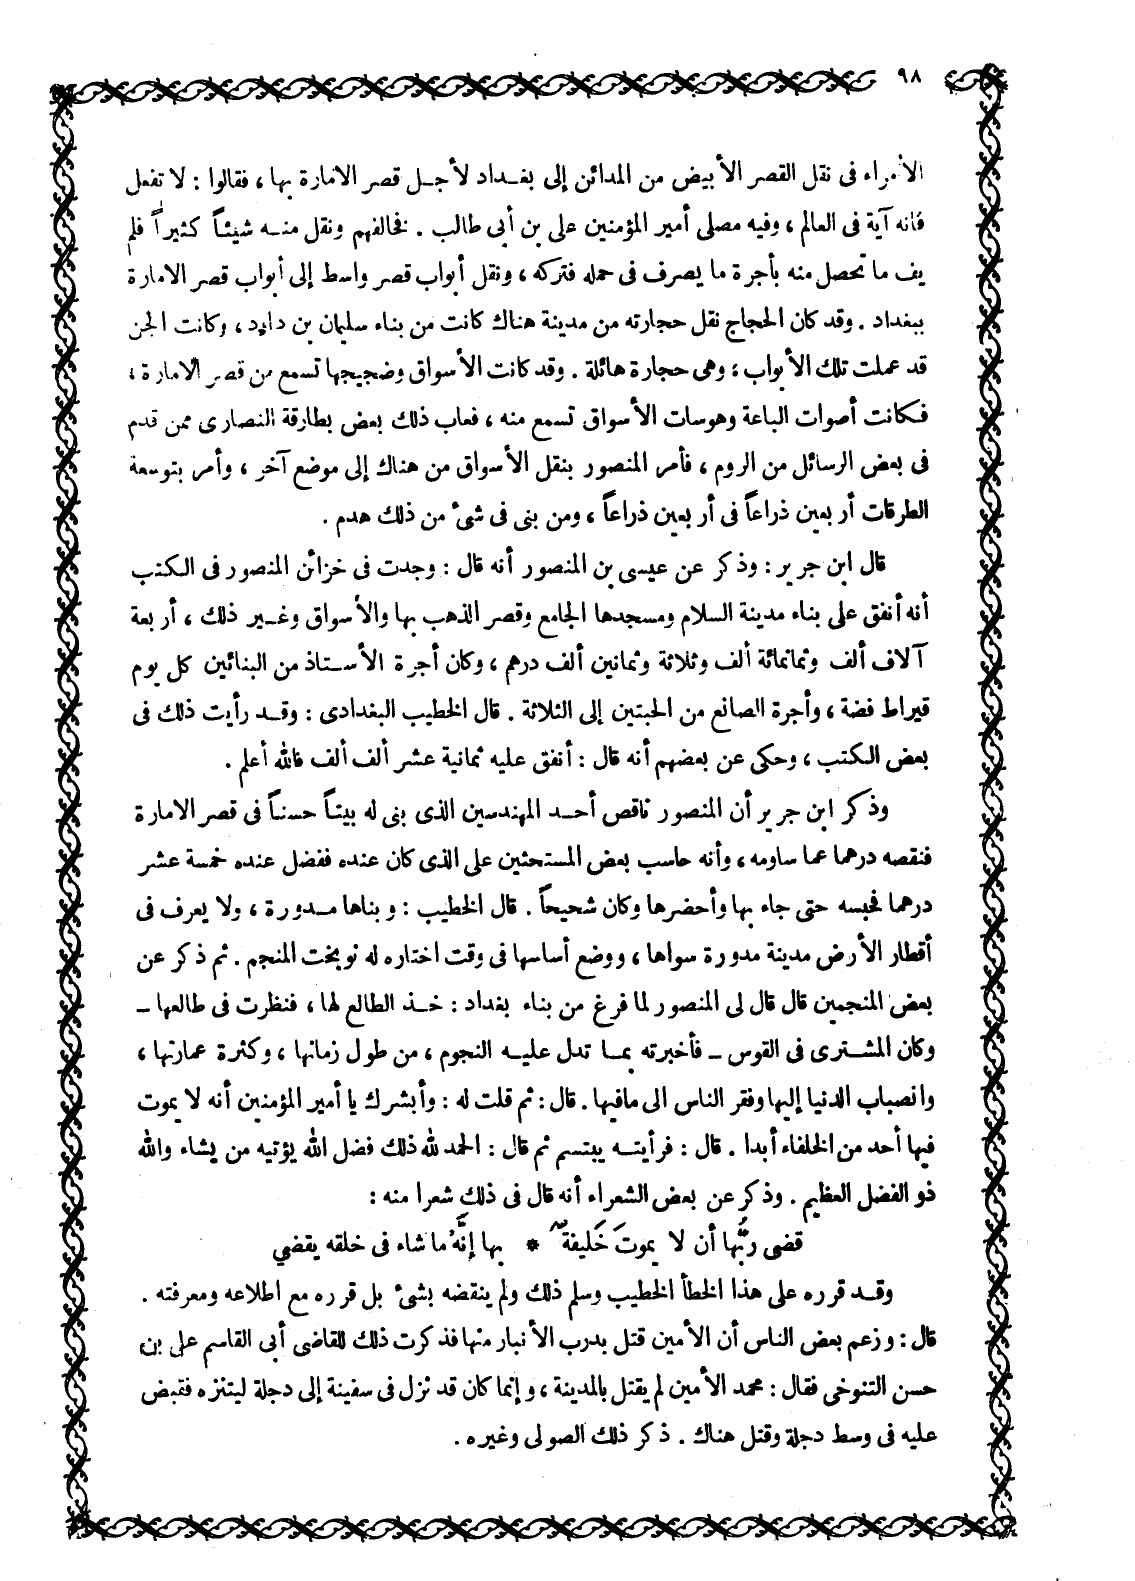 ٩٨
الأمراء فى نقل القصر الأبيض من المدائن إلى بغـداد لأجـل قصر الامارة بها ، فقالوا : لا تفعل
فانه آية فى العالم ، وفيه مصلى أمير المؤمنين على بن أبى طالب . فخالفهم ونقل منـه شيئاً كثيراً فلم
يف ما تحصل منه بأجرة ما يصرف فى حمله فتركه ، ونقل أبواب قصر واسط إلى أبواب قصر الامارة
ببغداد . وقد كان الحجاج نقل حجارته من مدينة هناك كانت من بناء سليمان بن داود ، وكانت الجن
قد عملت تلك الأبواب ، وهى حجارة هائلة . وقد كانت الأسواق وضجيجها تسمع من قصر الامارة ،
فكانت أصوات الباعة وهوسات الأسواق تسمع منه ، فعاب ذلك بعض بطارقة النصارى ممن قدم
فى بعض الرسائل من الروم ، فأمر المنصور بنقل الأسواق من هناك إلى موضع آخر ، وأمر بتوسعة
الطرقات أربعين ذراعاً فى أربعين ذراعاً ، ومن بنى فى شئ من ذلك هدم .
قال ابن جرير : وذكر عن عيسى بن المنصور أنه قال : وجدت فى خزائن المنصور فى الكتب
أنه أنفق على بناء مدينة السلام ومسجدها الجامع وقصر الذهب بها والأسواق وغـير ذلك ، أربعة
آلاف ألف وثمانمائة ألف وثلاثة وثمانين ألف درهم ، وكان أجرة الأسـتاذ من البنائين كل يوم
قيراط فضة ، وأجرة الصانع من الحبتين إلى الثلاثة . قال الخطيب البغدادى : وقـد رأيت ذلك فى
بعض الكتب ، وحكى عن بعضهم أنه قال : أنفق عليه ثمانية عشر ألف ألف فالله أعلم .
وذكر ابن جرير أن المنصور ناقص أحـد المهندسين الذى بنى له بيتاً حسناً فى قصر الامارة
فنقصه درهما عما ساومه ، وأنه حاسب بعض المستحثين على الذى كان عنده ففضل عنده خمسة عشر
درهما فحبسه حتى جاء بها وأحضرها وكان شحيحاً . قال الخطيب : وبناها مـدورة ، ولا يعرف فى
أقطار الأرض مدينة مدورة سواها ، ووضع أساسها فى وقت اختاره له نوبخت المنجم . ثم ذكر عن
بعض المنجمين قال قال لى المنصور لما فرغ من بناء بغداد : خـذ الطالع لها ، فنظرت فى طالعها ــ
وكان المشـترى فى القوس ــ فأخبرته بمـا تدل عليـه النجوم ، من طول زمانها ، وكثرة عمارتها ،
وانصباب الدنيا إليها وفقر الناس الى مافيها . قال : ثم قلت له : وأبشرك يا أمير المؤمنين أنه لا يموت
فيها أحد من الخلفاء أبدا . قال : فرأيتـه يبتسم ثم قال : الحمد لله ذلك فضل الله يؤتيه من يشاء والله
ذو الفضل العظيم . وذكر عن بعض الشعراء أنه قال فى ذلك شعرا منه :
قضى ربُّها أن لا يموتَ خَليفةٌ * بها إنَّهُ ما شاء فى خلقه يقضي
وقـد قرره على هذا الخطأ الخطيب وسلم ذلك ولم ينقضه بشئ بل قرره مع اطلاعه ومعرفته .
قال : وزعم بعض الناس أن الأمين قتل بدرب الأنبار منها فذكرت ذلك للقاضى أبى القاسم على بن
حسن التنوخى فقال : محمد الأمين لم يقتل بالمدينة ، وإنما كان قد نزل فى سفينة إلى دجلة ليتنزه فقبض
عليه فى وسط دجلة وقتل هناك . ذكر ذلك الصولى وغيره .